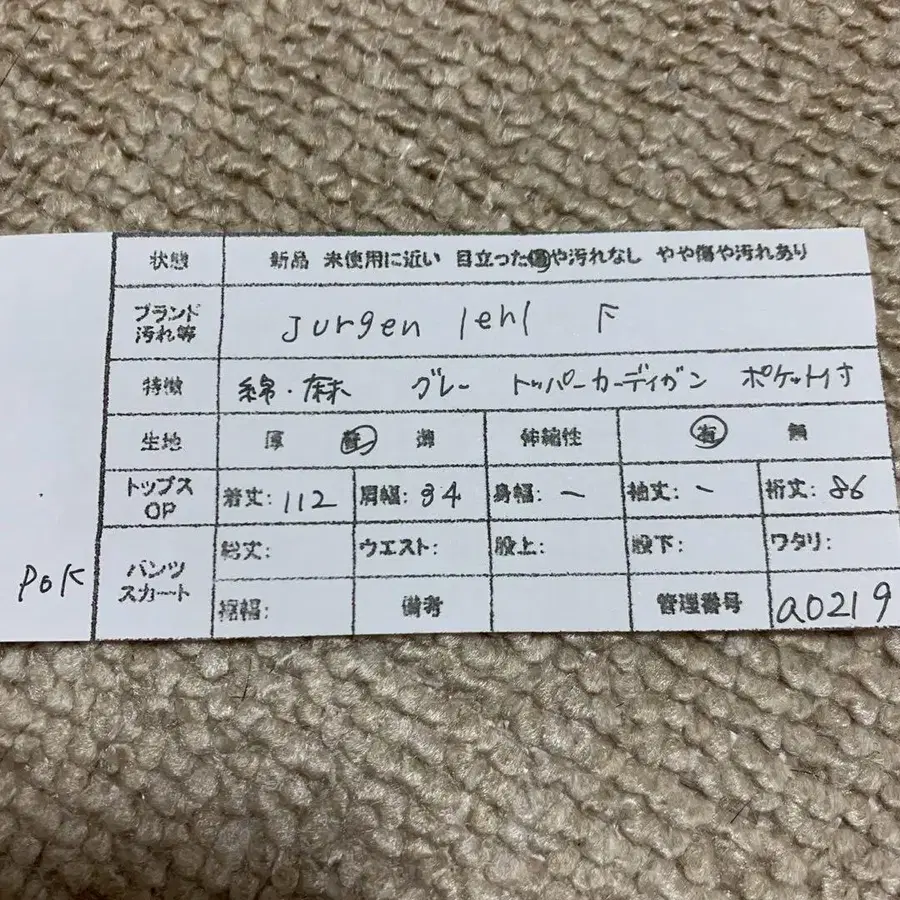 状態 新品 未使用に近い 目立った傷や汚れなし やや傷や汚れあり
ブランド
汚れ等 Jurgen lehl F
特徴 綿・麻 グレー トッパーカーディガン ポケット付
生地 厚 普 薄 伸縮性 有 無
トップス
OP 着丈: 112 肩幅: 34 身幅: ー 袖丈: ー 裄丈: 86
パンツ
スカート 総丈: ウエスト: 股上: 股下: ワタリ:
裾幅: 備考 管理番号 a0219
POK